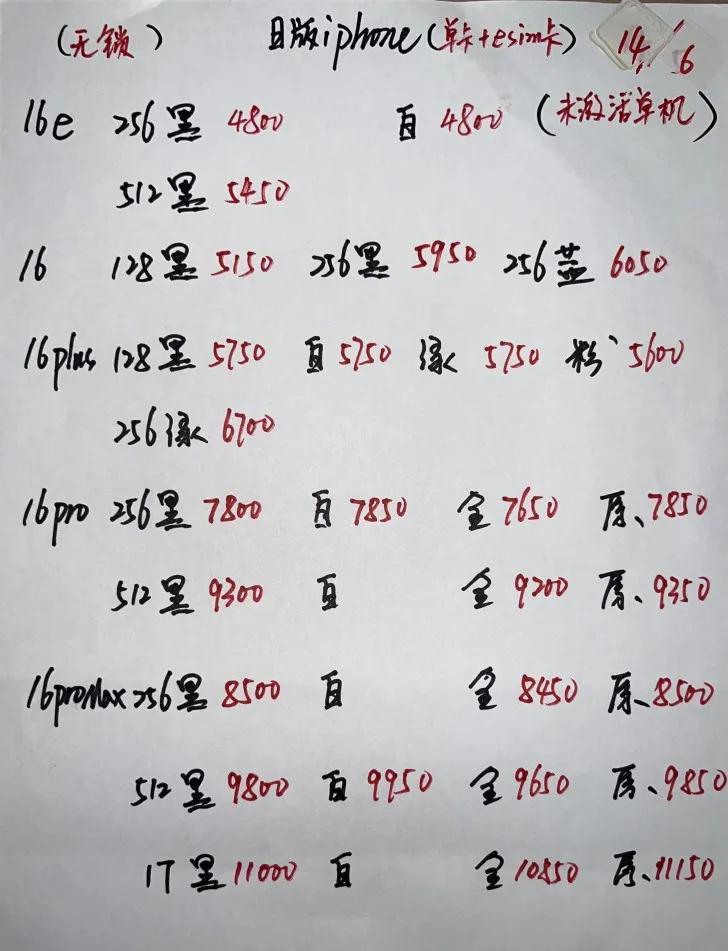 (无锁) 日版iphone(单卡+esim卡) 14/6
16e 256黑 4800 白 4800 (未激活单机)
512黑 5450
16 128黑 5150 256黑 5950 256蓝 6050
16plus 128黑 5750 白 5750 绿 5750 粉 5600
256绿 6700
16pro 256黑 7800 白 7850 金 7650 原、7850
512黑 9300 白 金 9200 原、9350
16proMax 256黑 8500 白 金 8450 原、8500
512黑 9800 白 9950 金 9650 原、9850
1T 黑 11000 白 金 10850 原、11150